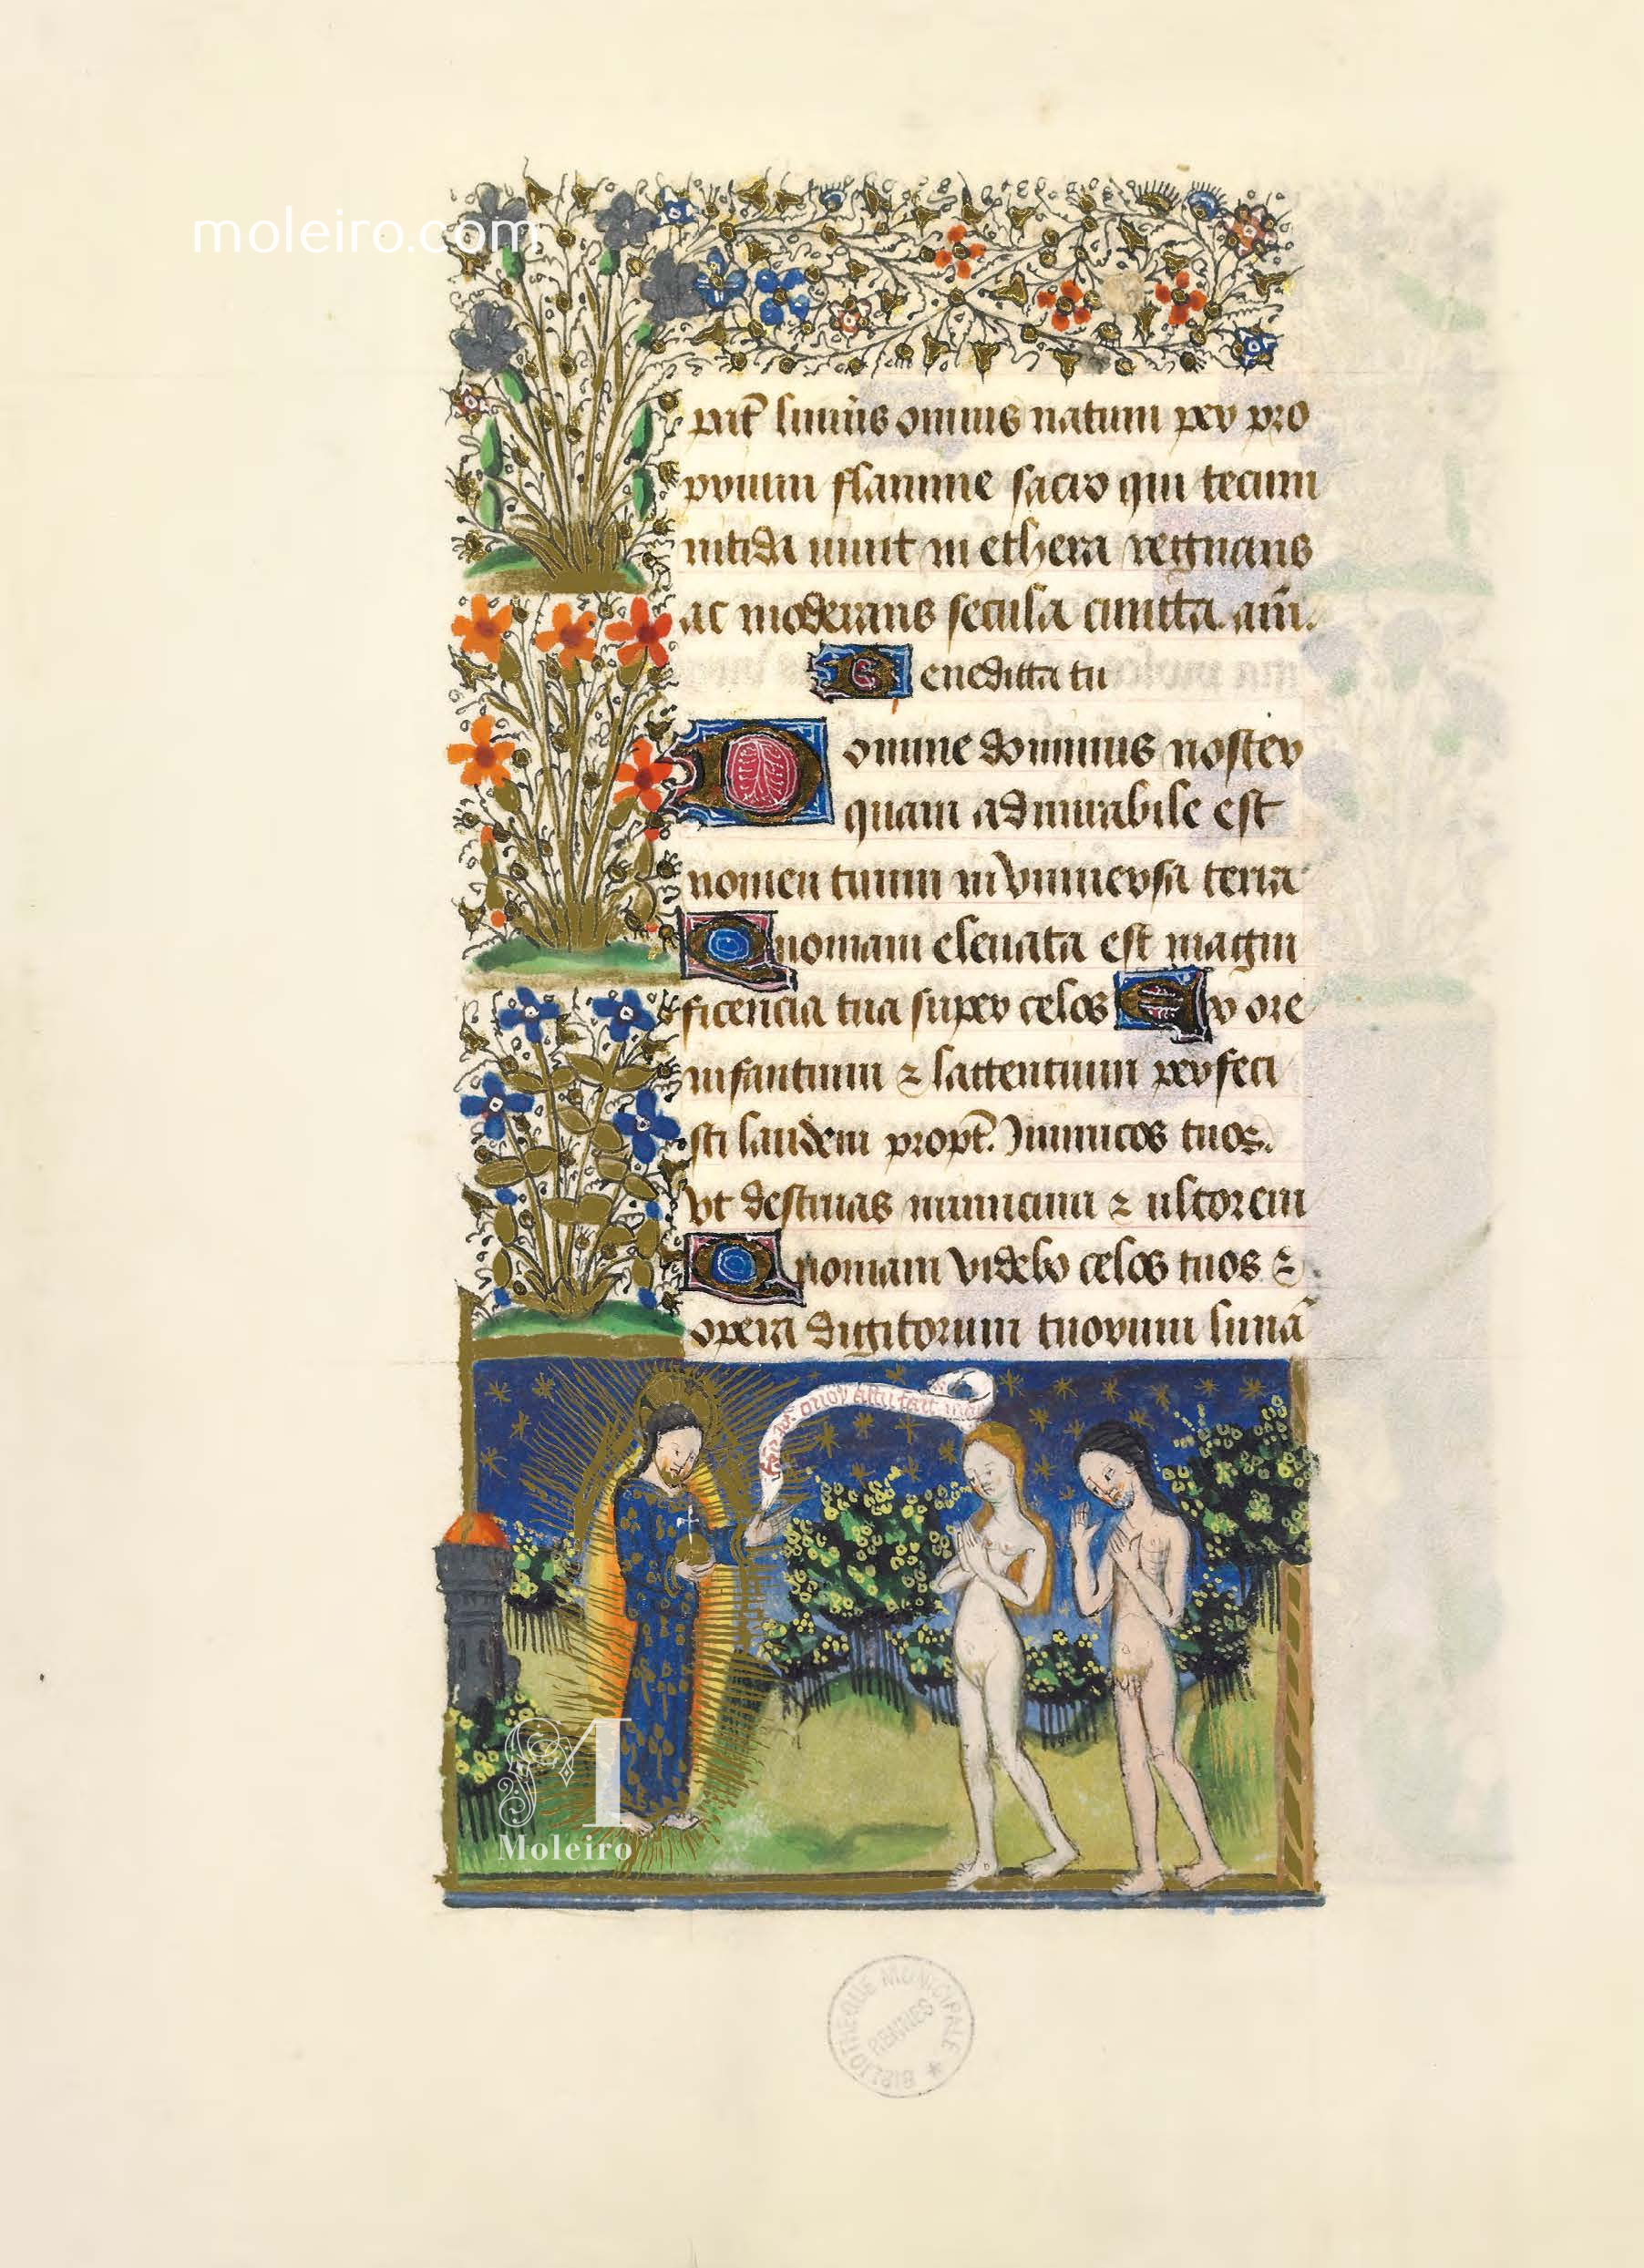 moleiro.com
nit sumus omnis natum per pro
prium flamine sacro qui tecum
nitida uiuit in ethera regnans
ac moderans secula cuncta. am̄.
Benedicta tu
Domine dominus noster
quam admirabile est
nomen tuum in vniuersa terra
Quoniam eleuata est magni
ficencia tua super celos Ex ore
infantium ⁊ lactentium perfeci
sti laudem propt̄. Inimicos tuos.
vt destruas inimicum ⁊ ultorem
Quoniam videbo celos tuos ⁊
opera digitorum tuorum lunā
M
Moleiro
BIBLIOTHEQUE MUNICIPALE
RENNES